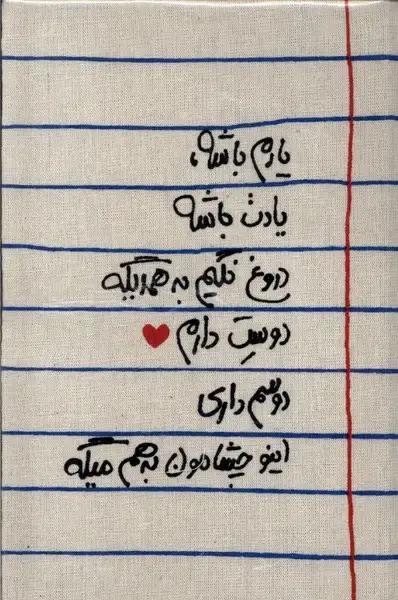 یادم باشه،
یادت باشه
دروغ نگیم به همدیگه
دوسِت دارم
دوسم داری
اینو چشادون بهم میگه